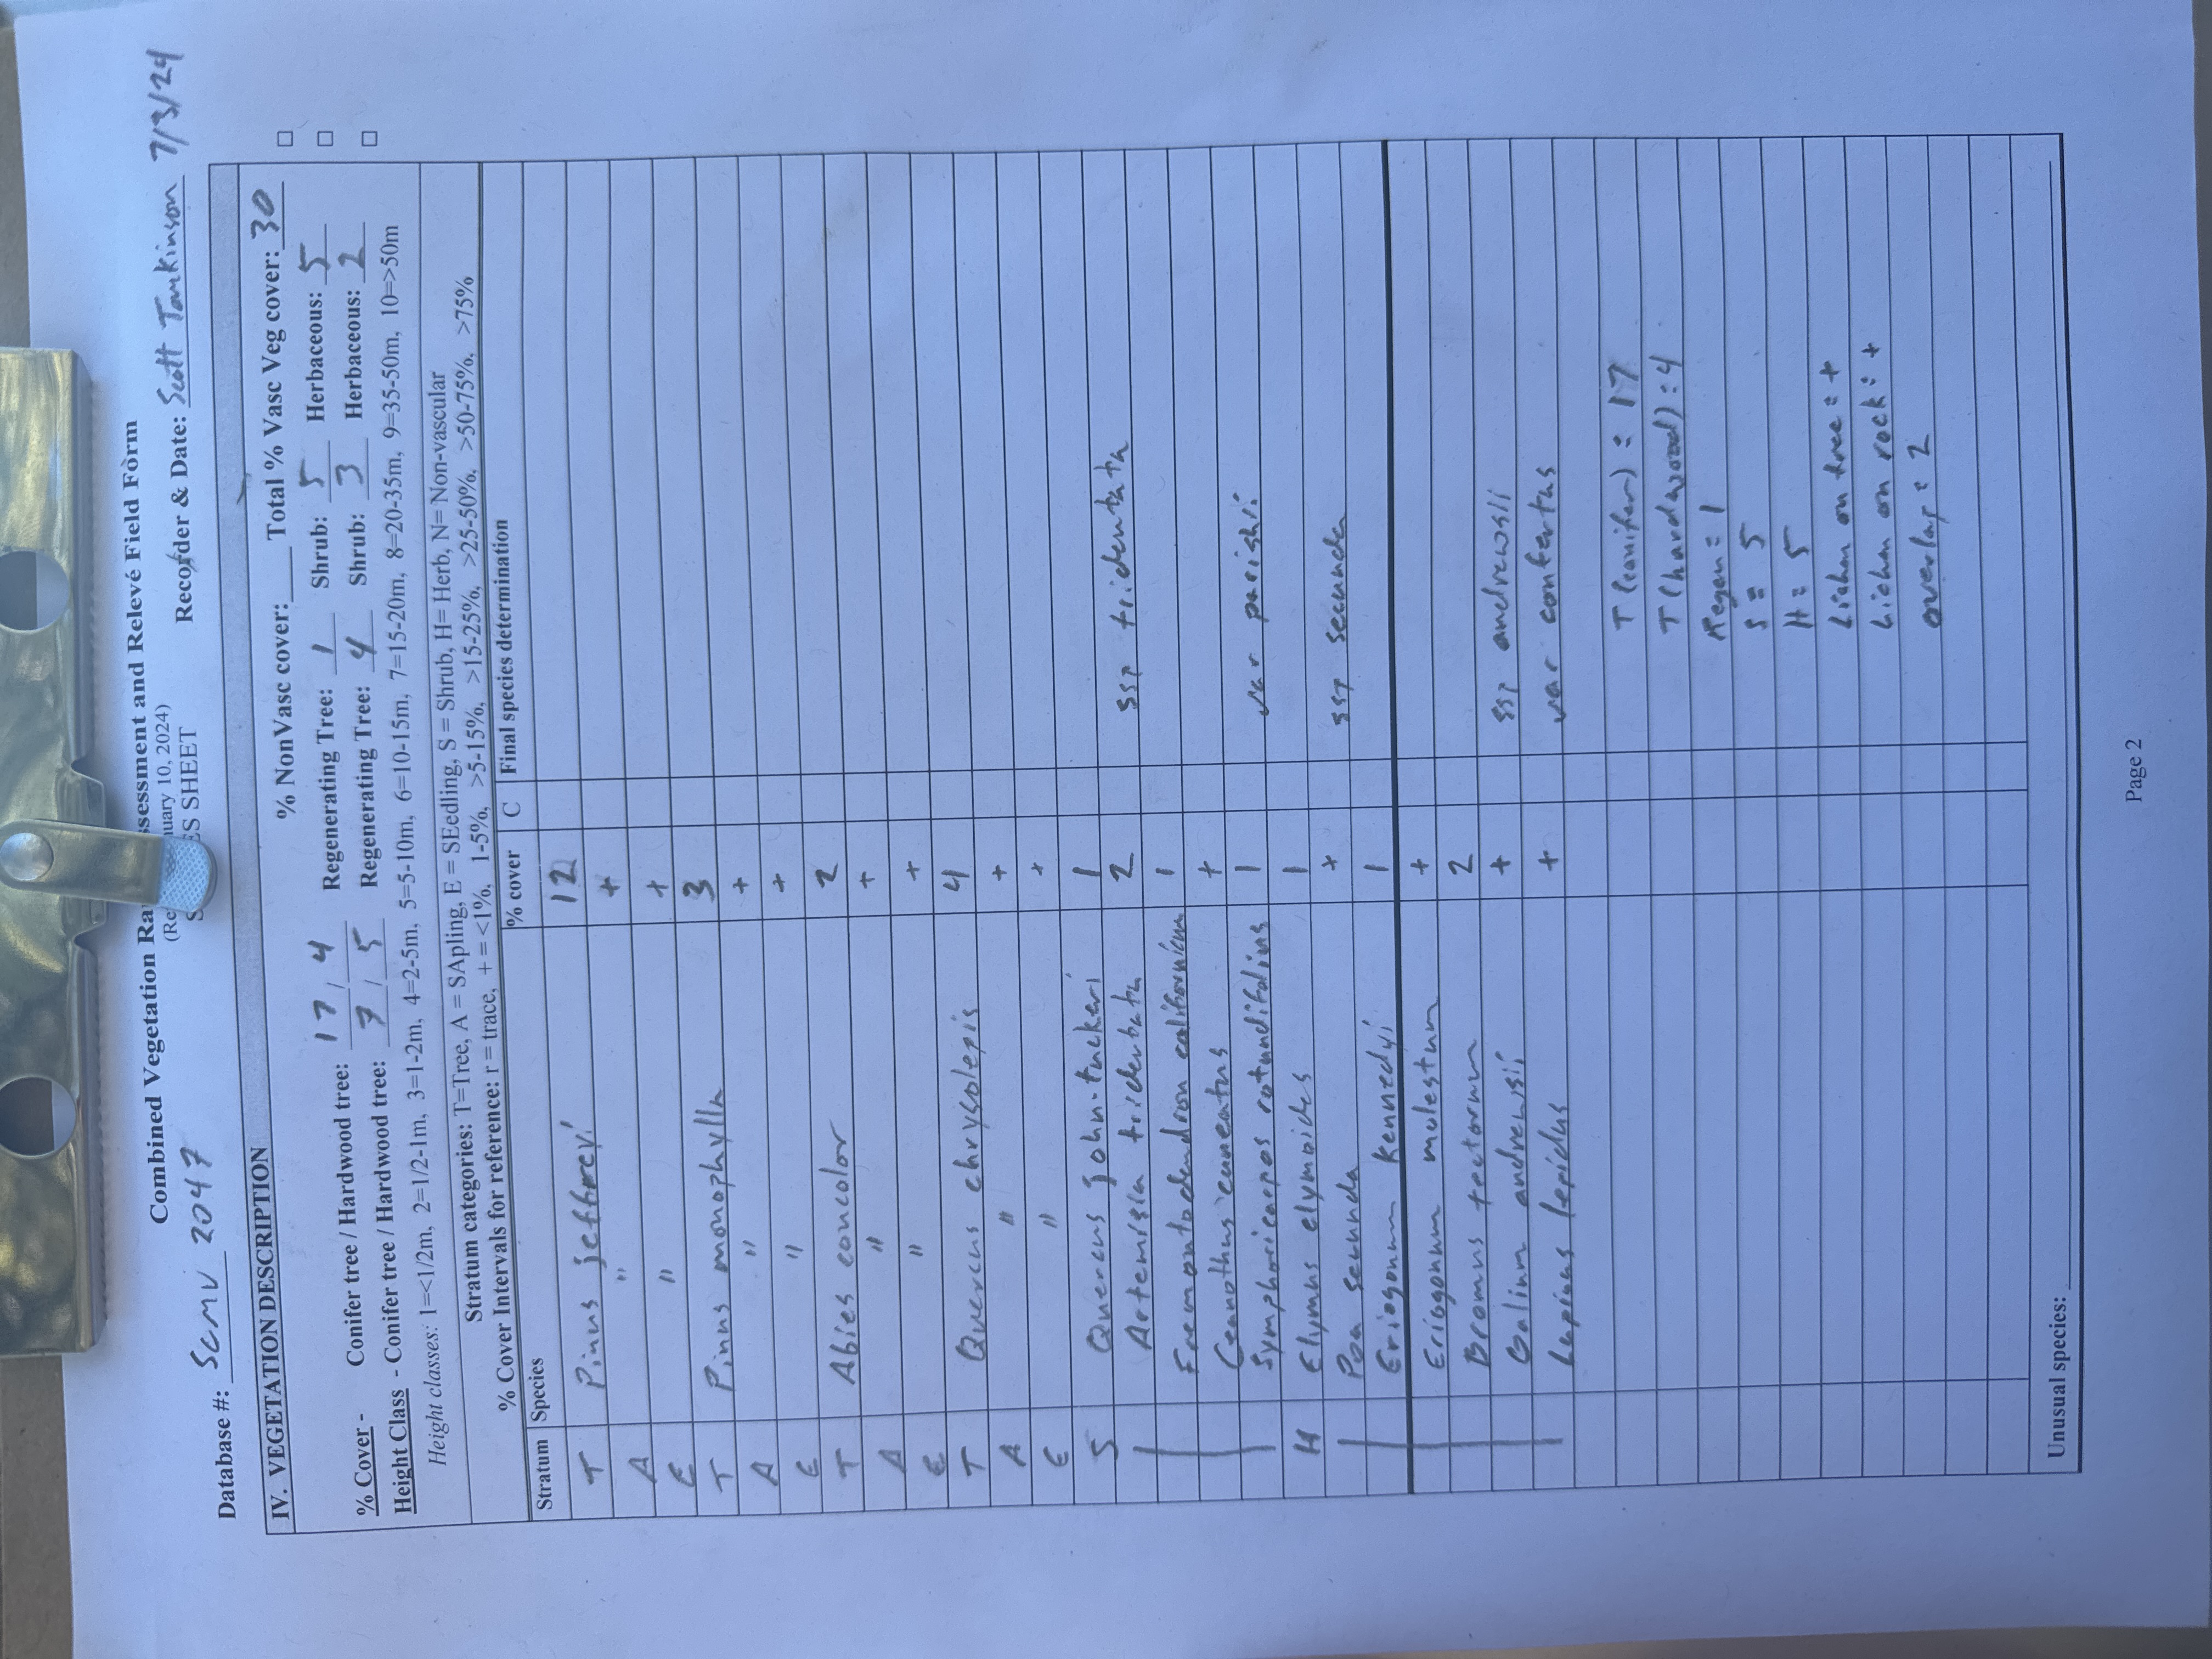 Combined Vegetation Ra ssessment and Relevé Field Form
(Re uary 10, 2024)
S ES SHEET
Database #: SCMV 2047 Recorder & Date: Scott Tomkinson 7/3/24
IV. VEGETATION DESCRIPTION
% NonVasc cover: Total % Vasc Veg cover: 30 □
% Cover - Conifer tree / Hardwood tree: 17 / 4 Regenerating Tree: 1 Shrub: 5 Herbaceous: 5 □
Height Class - Conifer tree / Hardwood tree: 7 / 5 Regenerating Tree: 4 Shrub: 3 Herbaceous: 2 □
Height classes: 1=<1/2m, 2=1/2-1m, 3=1-2m, 4=2-5m, 5=5-10m, 6=10-15m, 7=15-20m, 8=20-35m, 9=35-50m, 10=>50m
Stratum categories: T=Tree, A = SApling, E = SEedling, S = Shrub, H= Herb, N= Non-vascular
% Cover Intervals for reference: r = trace, + = <1%, 1-5%, >5-15%, >15-25%, >25-50%, >50-75%, >75%
Stratum Species % cover C Final species determination
T Pinus jeffreyi 12
A " +
E " +
T Pinus monophylla 3
A " +
E " +
T Abies concolor 2
A " +
E " +
T Quercus chrysolepis 4
A " +
E " +
S Quercus john-tuckeri 1
Artemisia tridentata 2 ssp tridentata
Fremontodendron californicum 1
Ceanothus cuneatus +
Symphoricarpos rotundifolius 1 var parishii
H Elymus elymoides 1
Poa secunda + ssp secunda
Eriogonum kennedyi 1
Eriogonum molestum +
Bromus tectorum 2
Galium andrewsii + ssp andrewsii
Lupinus lepidus + var confertus
T (conifer) : 17
T (hardwood) : 4
Regen = 1
S = 5
H = 5
Lichen on tree = +
Lichen on rock : +
overlap = 2
Unusual species:
Page 2